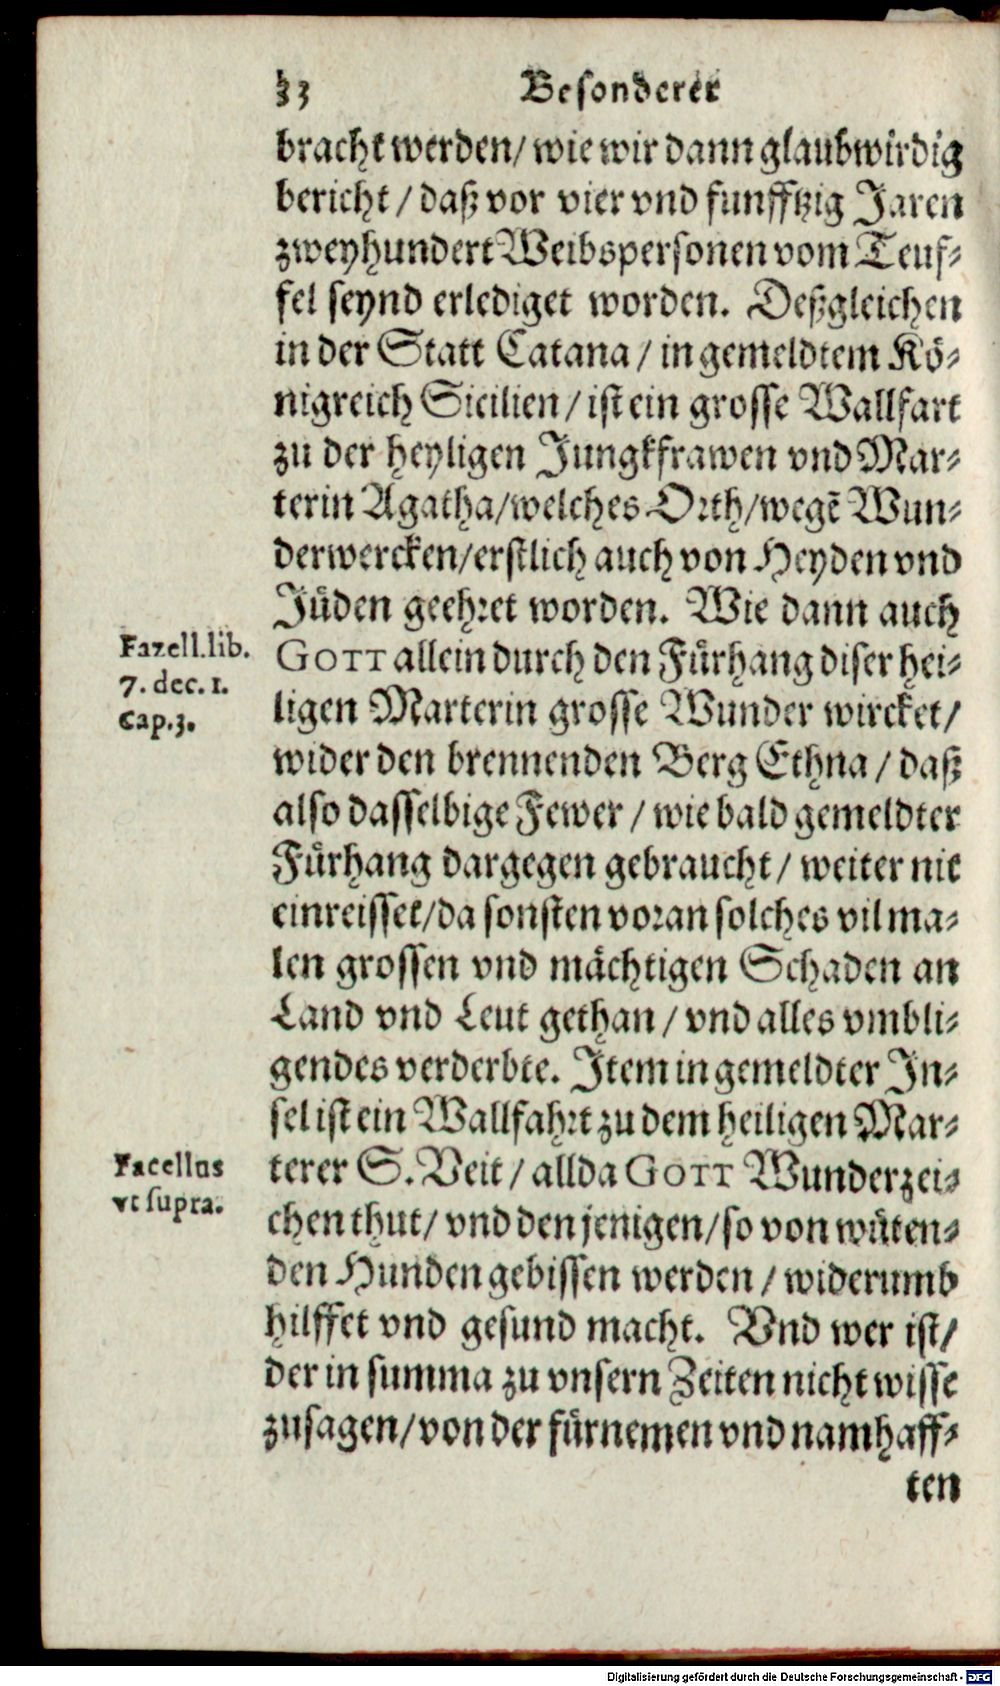 33 Besonderer
bracht werden/ wie wir dann glaubwirdig
bericht / daß vor vier vnd funfftzig Jaren
zweyhundert Weibspersonen vom Teuf⸗
fel seynd erlediget worden. Deßgleichen
in der Statt Catana / in gemeldtem Kö⸗
nigreich Sicilien / ist ein grosse Wallfart
zu der heyligen Jungkfrawen vnd Mar⸗
terin Agatha/welches Orth/wegẽ Wun⸗
derwercken/erstlich auch von Heyden vnd
Jüden geehret worden. Wie dann auch
Fazell.lib.
7. dec. 1.
Cap.3.
GOTT allein durch den Fürhang diser hei⸗
ligen Marterin grosse Wunder wircket/
wider den brennenden Berg Ethna / daß
also dasselbige Fewer / wie bald gemeldter
Fürhang dargegen gebraucht / weiter nit
einreisset/da sonsten voran solches vilma⸗
len grossen vnd mächtigen Schaden an
Land vnd Leut gethan / vnd alles vmbli⸗
gendes verderbte. Item in gemeldter In⸗
sel ist ein Wallfahrt zu dem heiligen Mar⸗
Facellus
vt supra.
terer S. Veit / allda GOTT Wunderzei⸗
chen thut/ vnd den jenigen/so von wüten⸗
den Hunden gebissen werden / widerumb
hilffet vnd gesund macht. Vnd wer ist/
der in summa zu vnsern Zeiten nicht wisse
zusagen/von der fürnemen vnd namhaff⸗
ten
Digitalisierung gefördert durch die Deutsche Forschungsgemeinschaft - DFG